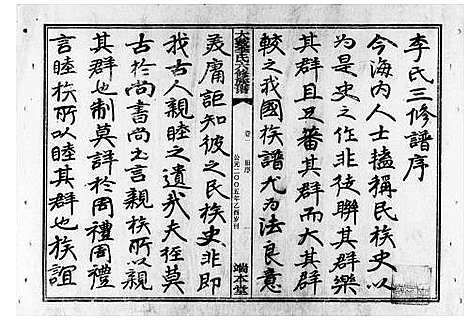 李氏三修譜序
今海内人士搕稱民族史以
為是史之作非徒聯其群樂
其群且足番其群而大其群
較之我國族譜尤為法良意
六修族譜
卷一 旧序
公元二〇〇五年乙酉岁刊
端本堂
美庸詎知彼之民族史非即
我古人親睦之遺我夫徑莫
古於尚書尚書言親族所以親
其群也制莫詳於周禮周禮
言睦族所以睦其群也族誼